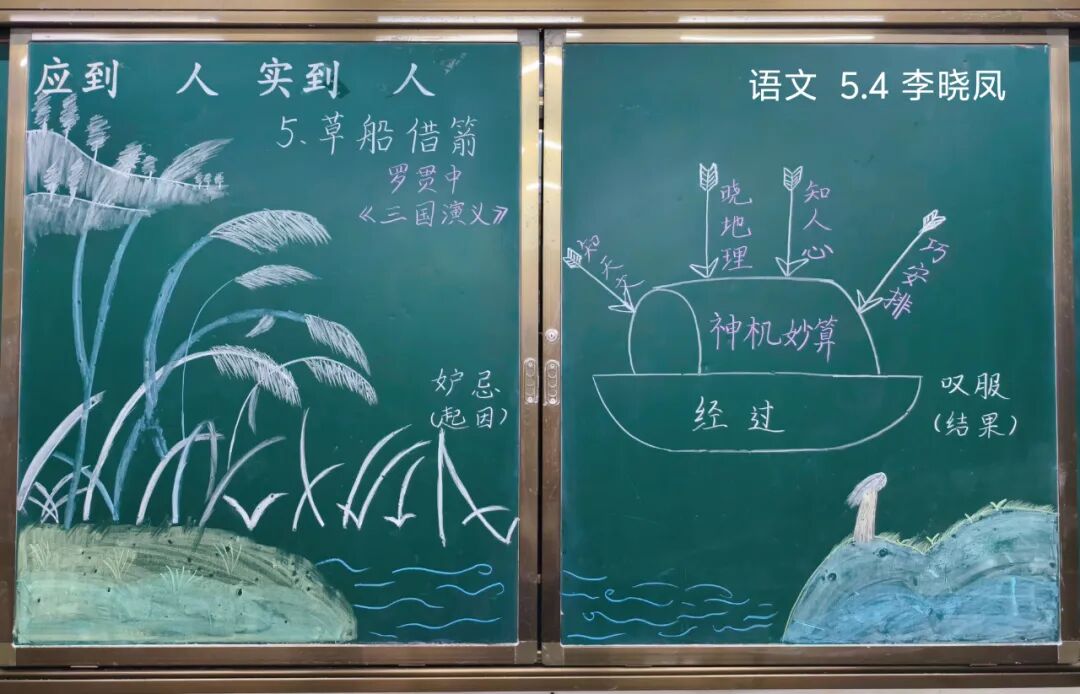 应到 人 实到 人
5.草船借箭
罗贯中
《三国演义》
妒忌
(起因)
语文 5.4 李晓凤
知天文
晓地理
知人心
巧安排
神机妙算
经过
叹服
(结果)